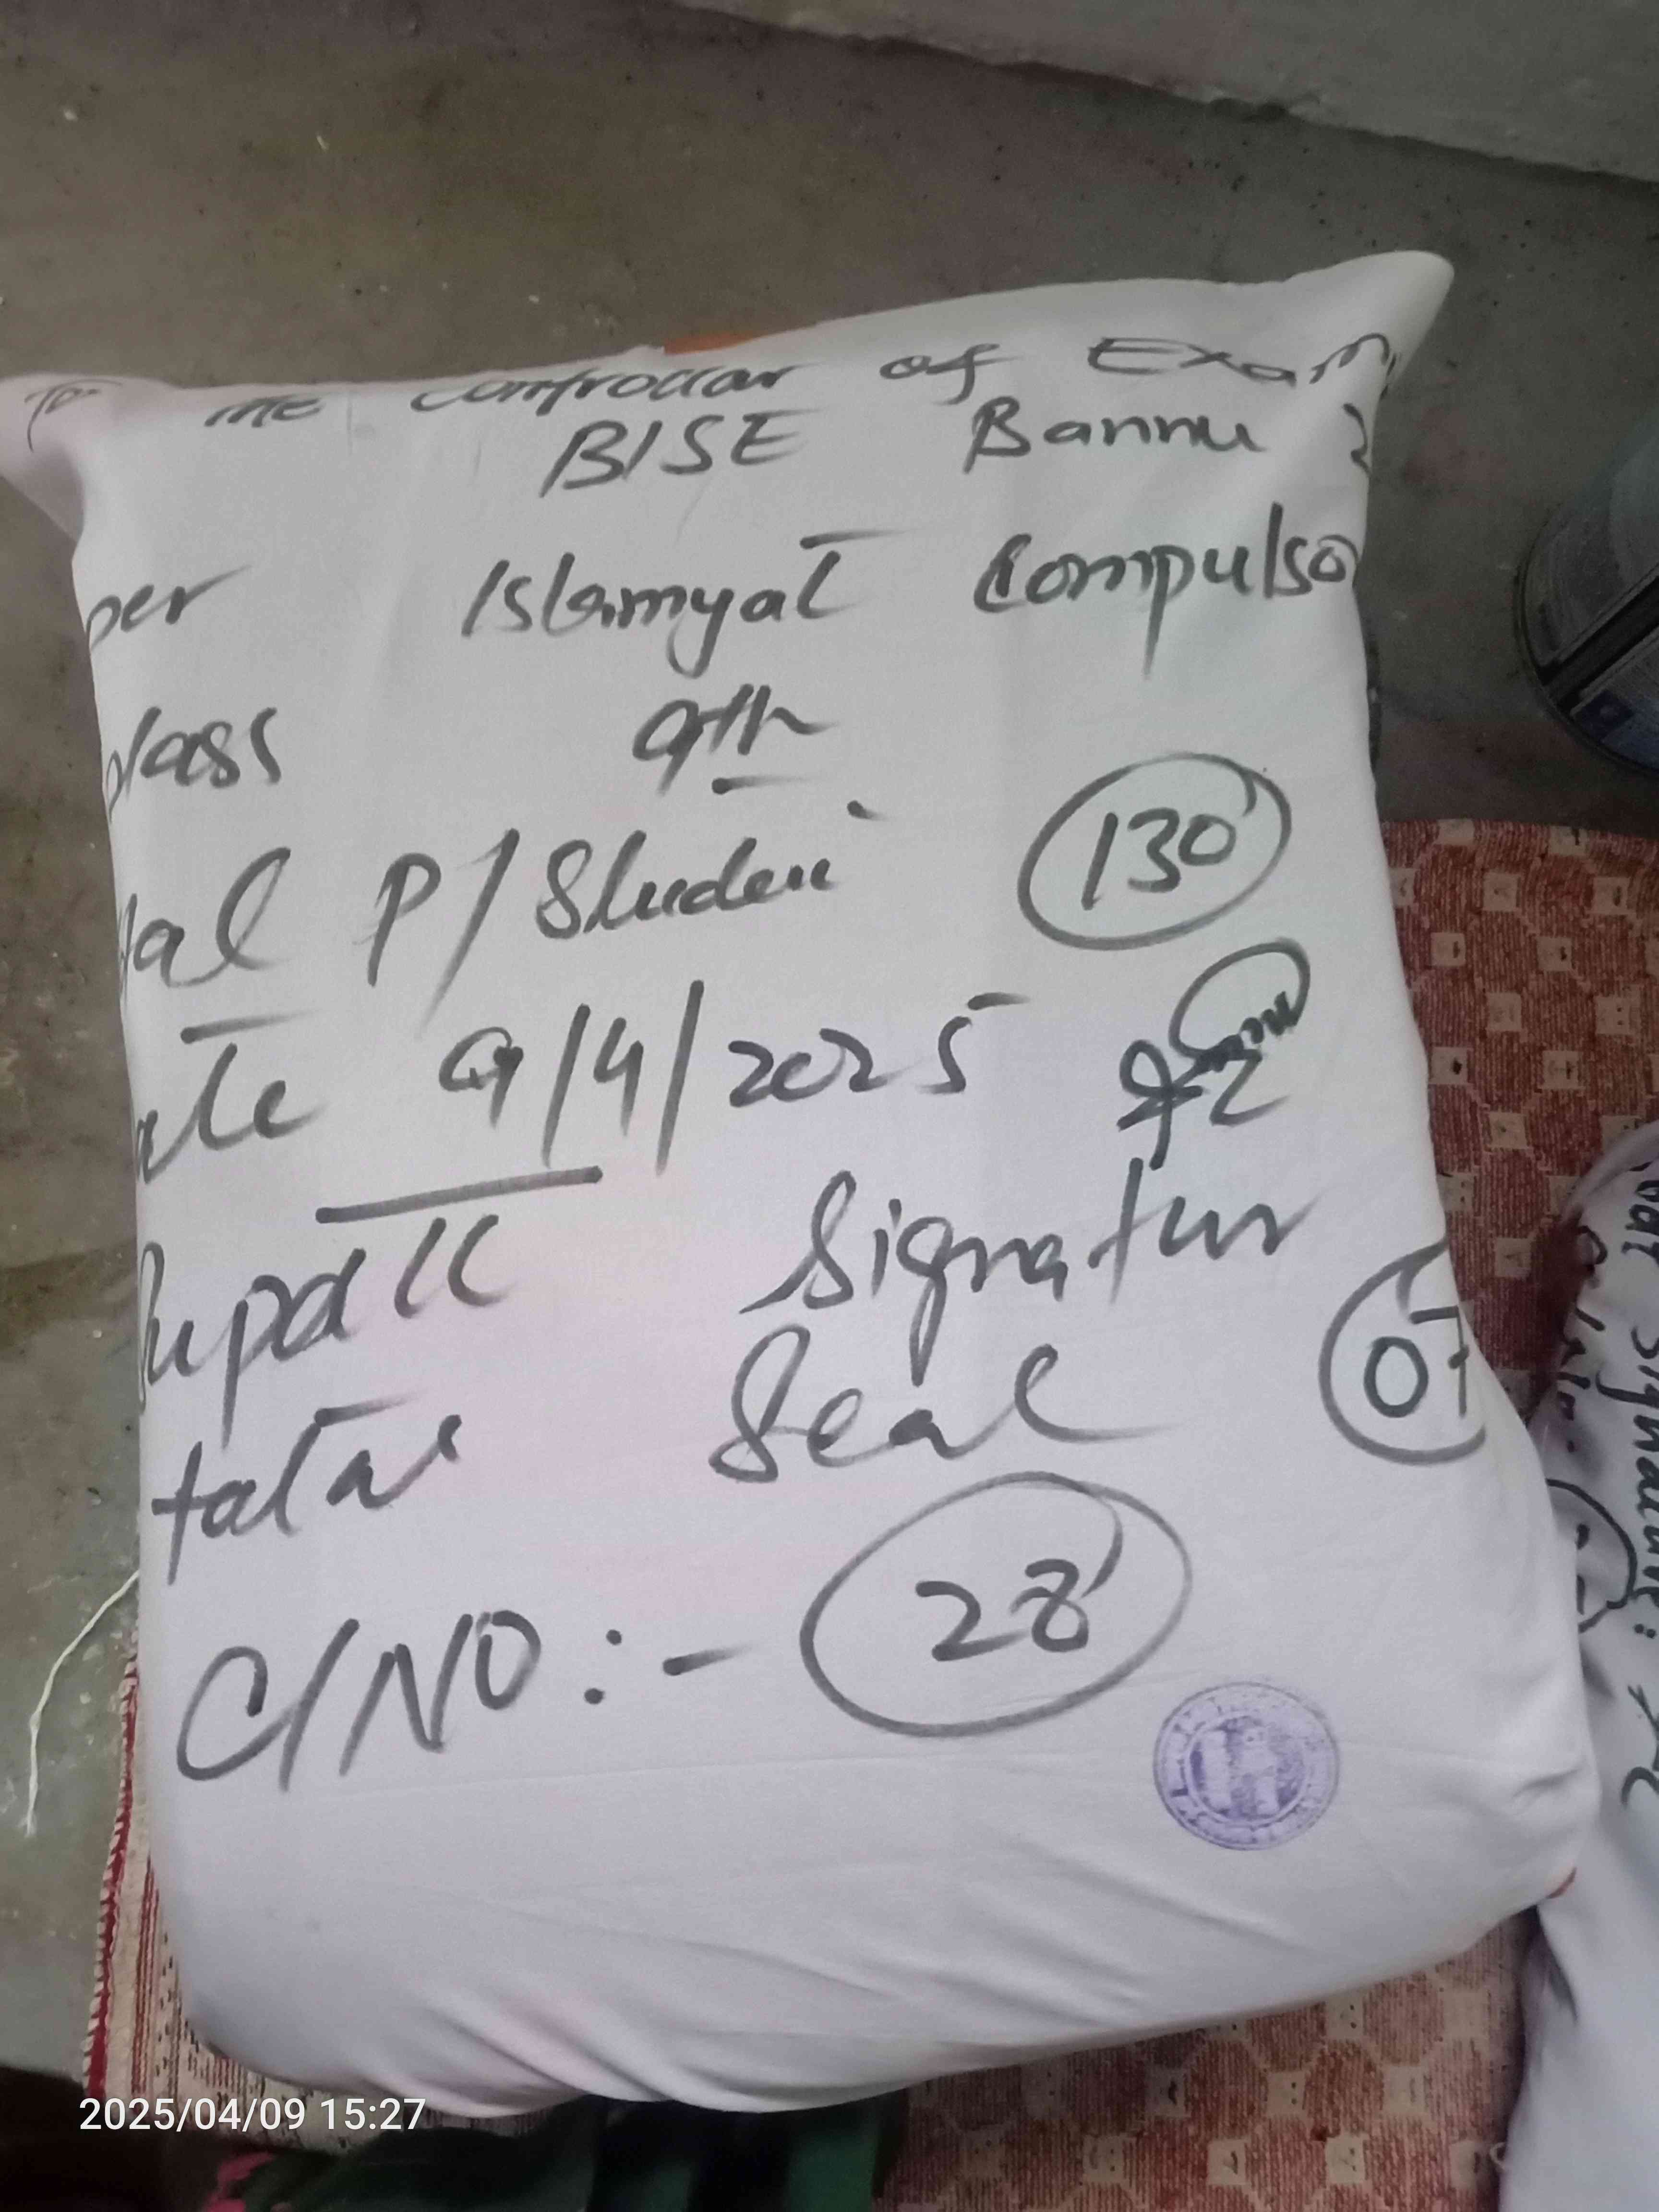 To the Controllar of Exam
BISE Bannu
per Islamyat Compulso
class 9th
tal P/Student 130
ate 9/4/2025
Signatur
total Seal 07
C/NO:- 28
2025/04/09 15:27